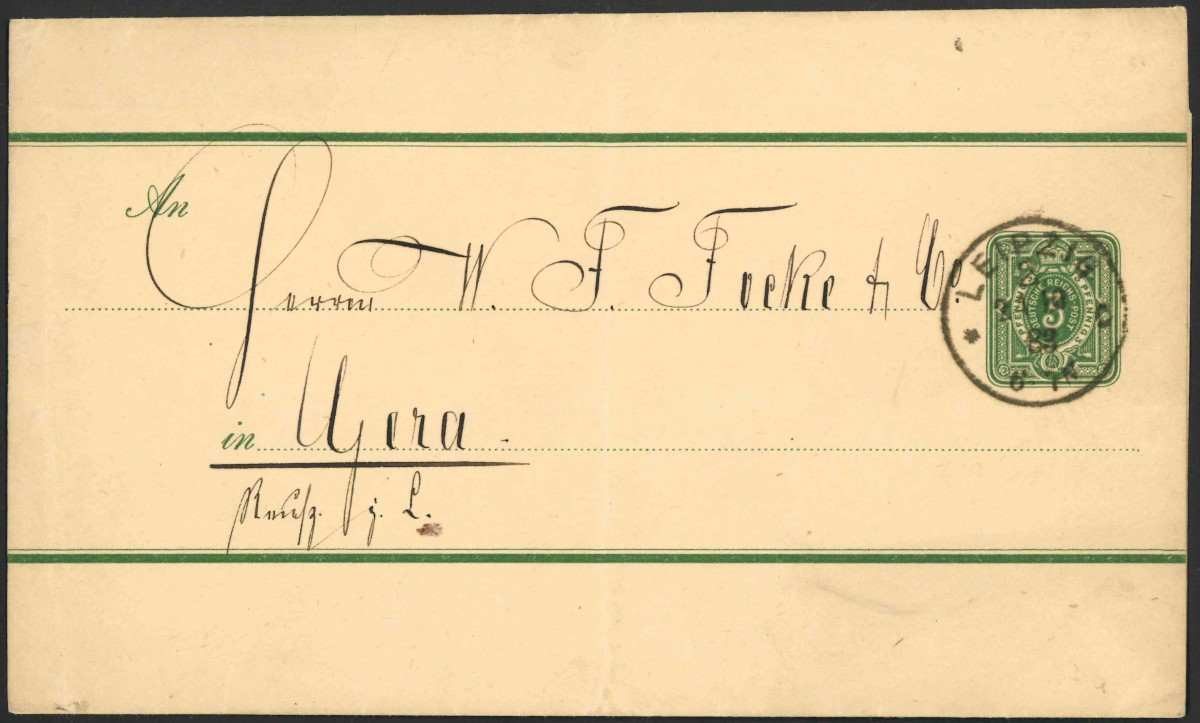 An
Herrn W. F. Focke & Co.
in Gera.
Reuß j. L.
LEIPZIG
3 PFENNIG 3 PFENNIG 3
DEUTSCHE REICHS-POST
3